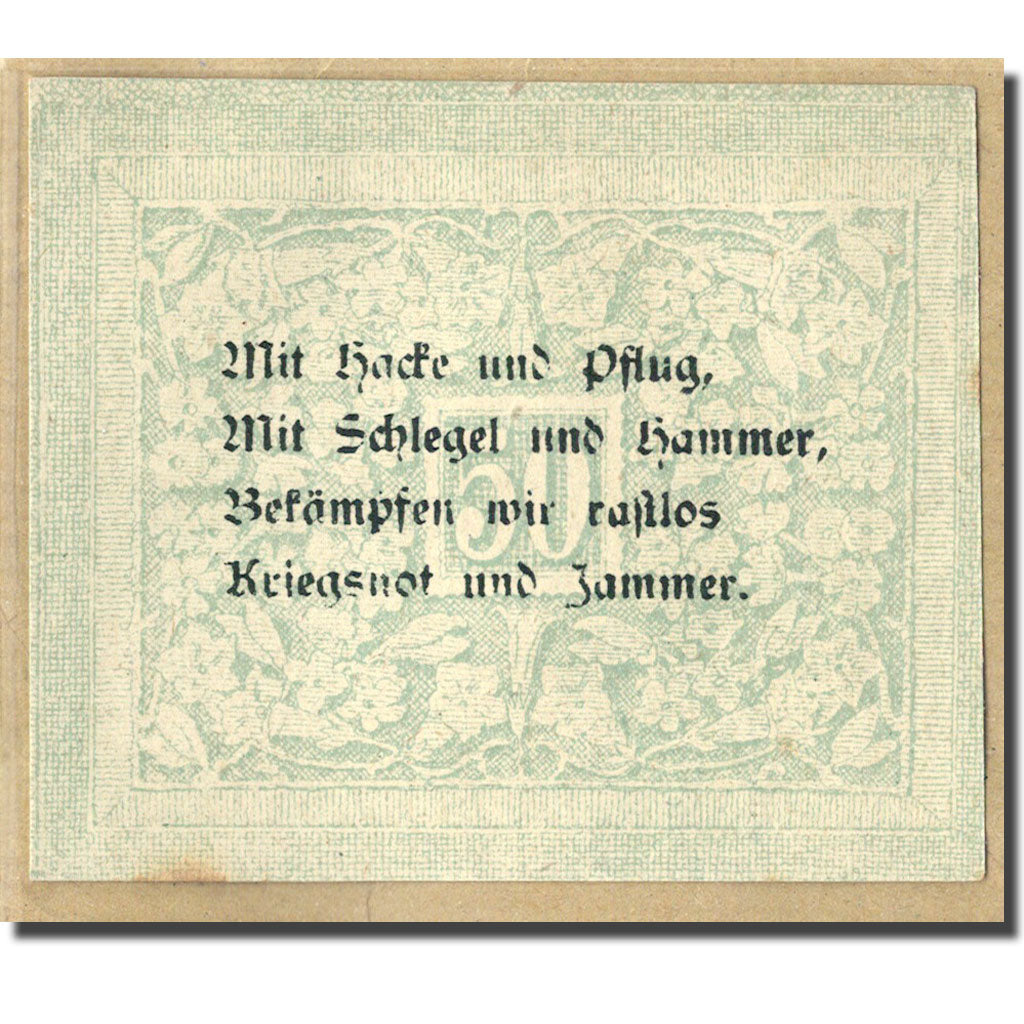 Mit Hacke und Pflug,
Mit Schlegel und Hammer,
50
Bekämpfen wir rastlos
Kriegsnot und Jammer.